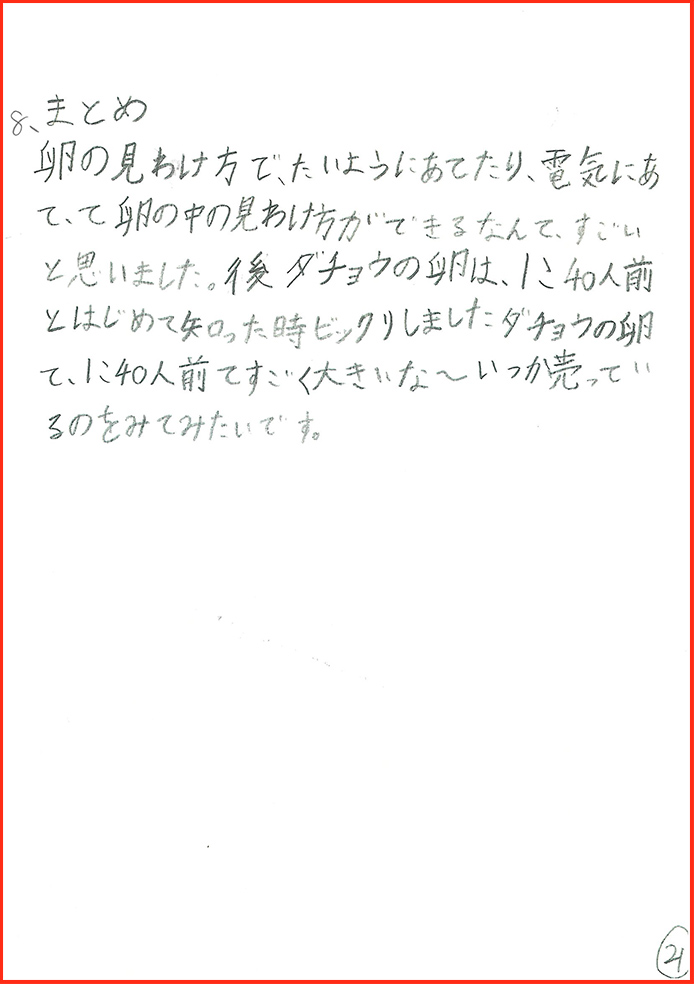 8、まとめ
卵の見わけ方で、たいようにあてたり、電気にあ
て、て卵の中の見わけ方ができるなんて、すごい
と思いました。後ダチョウの卵は、1こ40人前
とはじめて知った時ビックリしましたダチョウの卵
て、1こ40人前てすごく大きいな～いつか売ってい
るのをみてみたいです。
21